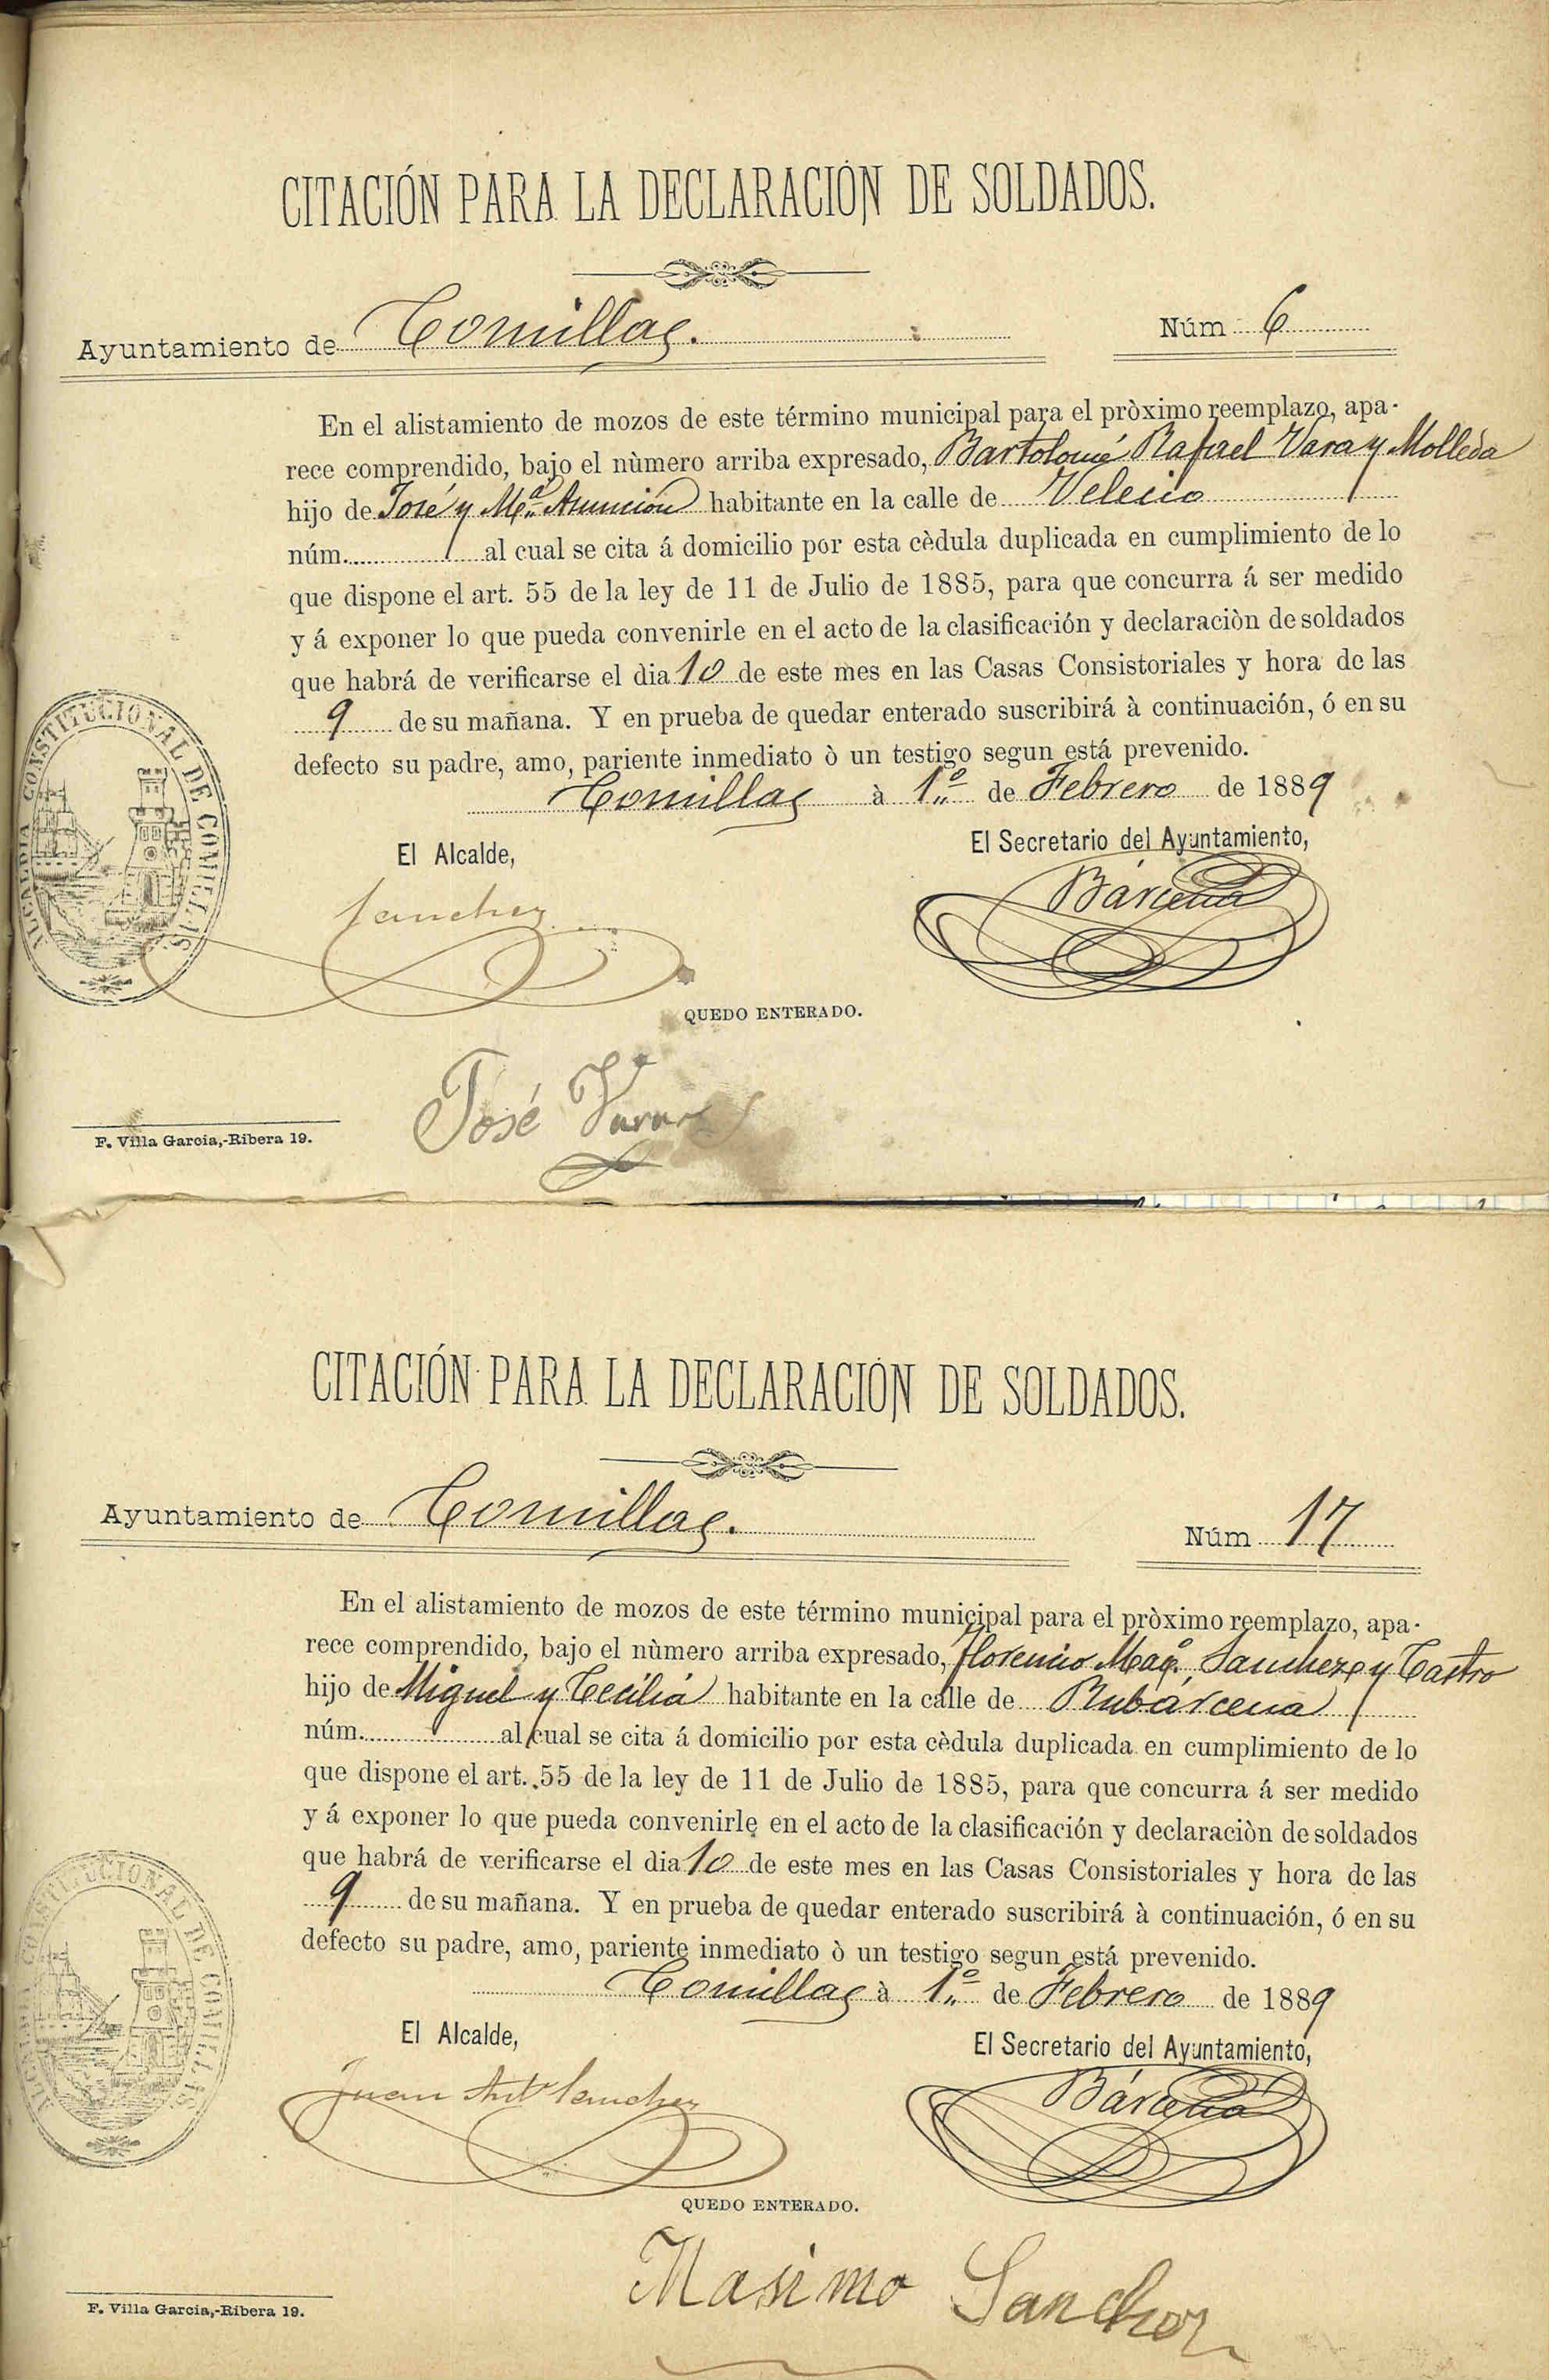 CITACIÓN PARA LA DECLARACIÓN DE SOLDADOS.
Ayuntamiento de Comillas. Núm 6
En el alistamiento de mozos de este término municipal para el pròximo reemplazo, apa-
rece comprendido, bajo el nùmero arriba expresado, Bartolomé Rafael Vara y Molleda
hijo de José y Mª Asunción habitante en la calle de Velecio
núm. al cual se cita á domicilio por esta cèdula duplicada en cumplimiento de lo
que dispone el art. 55 de la ley de 11 de Julio de 1885, para que concurra á ser medido
y á exponer lo que pueda convenirle en el acto de la clasificación y declaraciòn de soldados
que habrá de verificarse el dia 10 de este mes en las Casas Consistoriales y hora de las
9 de su mañana. Y en prueba de quedar enterado suscribirá à continuación, ó en su
defecto su padre, amo, pariente inmediato ò un testigo segun está prevenido.
Comillas à 1º de Febrero de 1889
El Alcalde, El Secretario del Ayuntamiento,
Sanchez Bárcena
ALCALDIA CONSTITUCIONAL DE COMILLAS
QUEDO ENTERADO.
José Vara
F. Villa Garcia,-Ribera 19.
CITACIÓN PARA LA DECLARACIÓN DE SOLDADOS.
Ayuntamiento de Comillas. Núm 17
En el alistamiento de mozos de este término municipal para el pròximo reemplazo, apa-
rece comprendido, bajo el nùmero arriba expresado, Florencio Sanchez y Castro
hijo de Miguel y Cecilia habitante en la calle de Rubárcena
núm. al cual se cita á domicilio por esta cèdula duplicada en cumplimiento de lo
que dispone el art. 55 de la ley de 11 de Julio de 1885, para que concurra á ser medido
y á exponer lo que pueda convenirle en el acto de la clasificación y declaraciòn de soldados
que habrá de verificarse el dia 10 de este mes en las Casas Consistoriales y hora de las
9 de su mañana. Y en prueba de quedar enterado suscribirá à continuación, ó en su
defecto su padre, amo, pariente inmediato ò un testigo segun está prevenido.
Comillas à 1º de Febrero de 1889
El Alcalde, El Secretario del Ayuntamiento,
Juan Antº Sanchez Bárcena
ALCALDIA CONSTITUCIONAL DE COMILLAS
QUEDO ENTERADO.
Masimo Sanchez
F. Villa Garcia,-Ribera 19.